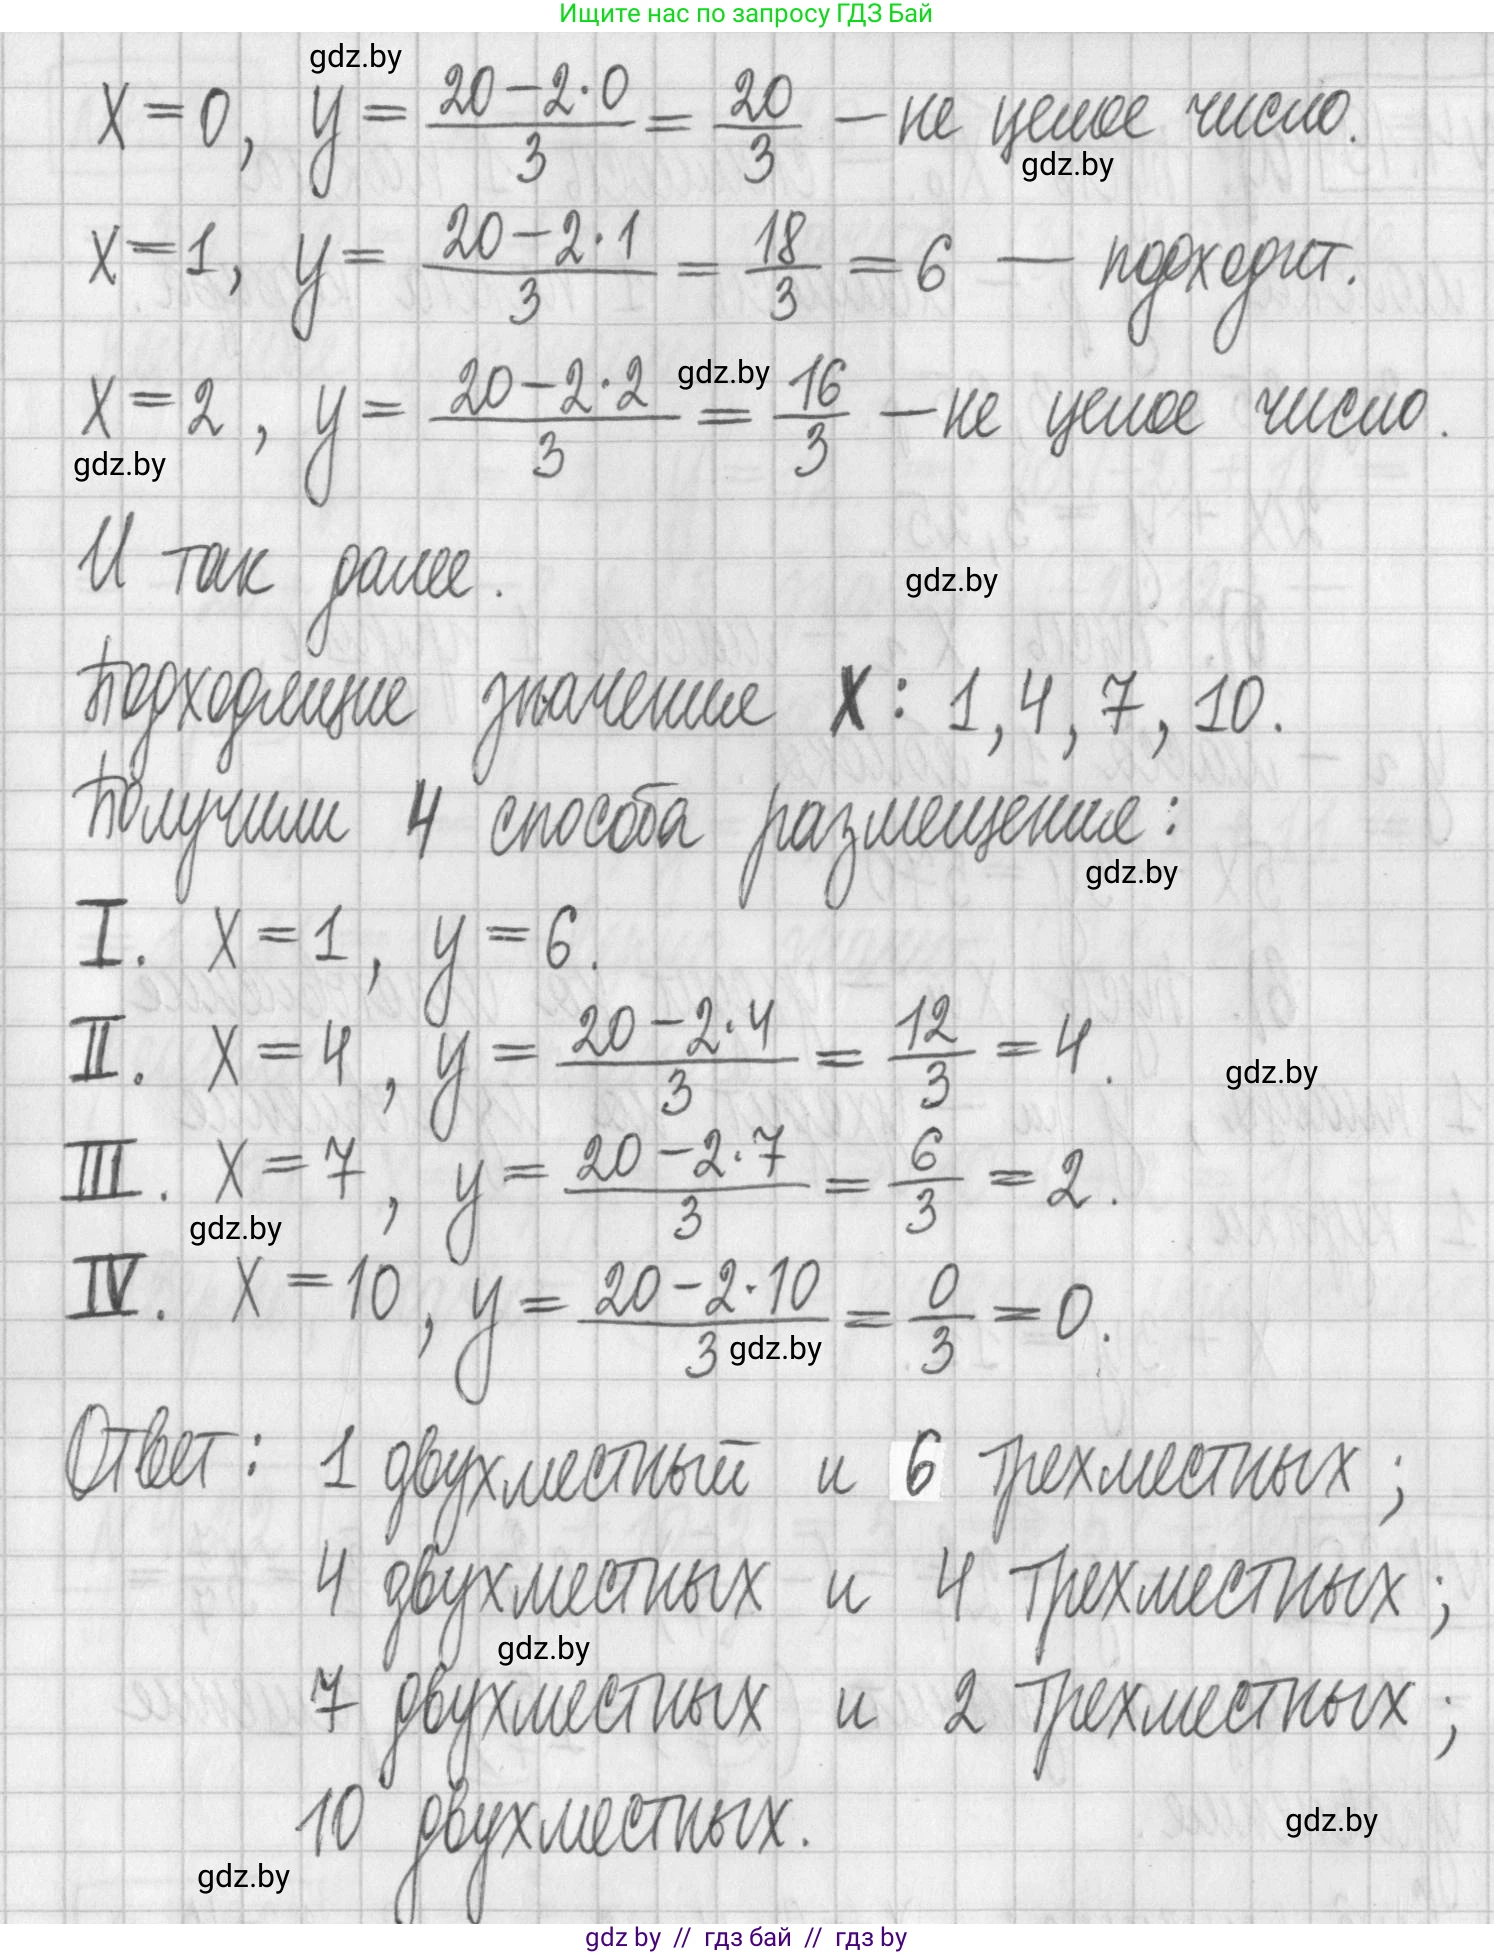 Ищите нас по запросу ГДЗ Бай
gdz.by
x=0, y= (20-2·0)/3 = 20/3 — не целое число.
gdz.by
x=1, y= (20-2·1)/3 = 18/3 = 6 — подходит.
gdz.by
x=2, y= (20-2·2)/3 = 16/3 — не целое число.
gdz.by
И так далее.
gdz.by
Подходящие значения x: 1, 4, 7, 10.
Получили 4 способа размещения:
gdz.by
I. x=1, y=6.
II. x=4, y= (20-2·4)/3 = 12/3 = 4.
gdz.by
III. x=7, y= (20-2·7)/3 = 6/3 = 2.
gdz.by
IV. x=10, y= (20-2·10)/3 = 0/3 = 0.
gdz.by
Ответ: 1 двухместный и 6 трехместных;
4 двухместных и 4 трехместных;
gdz.by
7 двухместных и 2 трехместных;
10 двухместных.
gdz.by
gdz.by
gdz by // гдз бай // гдз by